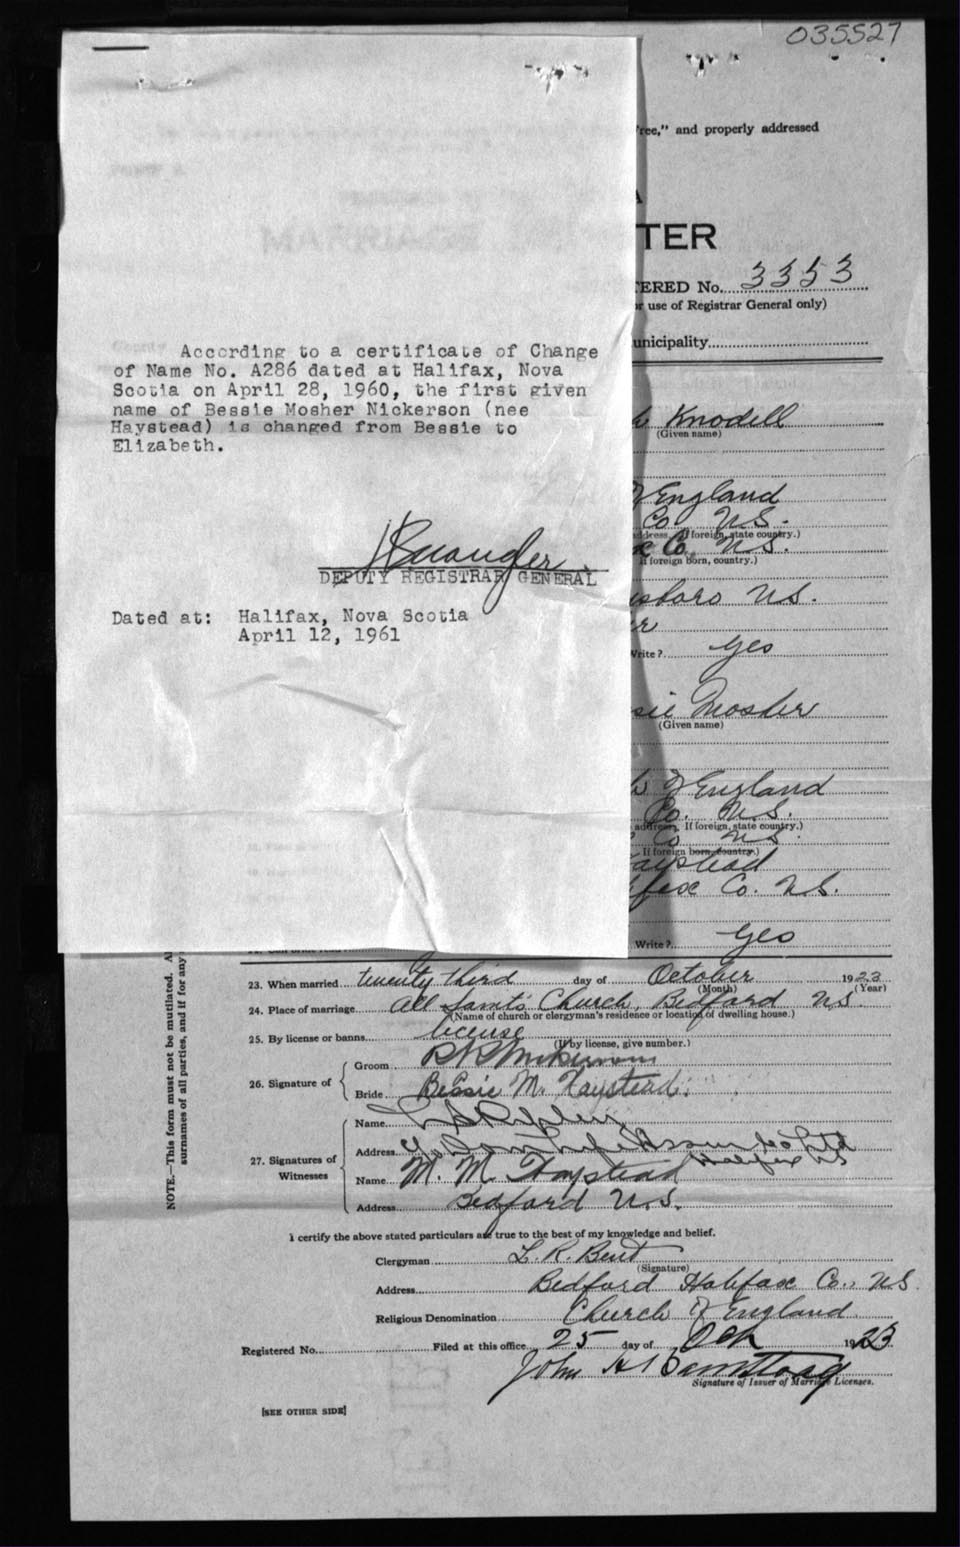 035527
ree," and properly addressed
TER
TERED No. 3353
or use of Registrar General only)
unicipality
According to a certificate of Change
of Name No. A286 dated at Halifax, Nova
Scotia on April 28, 1960, the first given
name of Bessie Mosher Nickerson (nee
Haystead) is changed from Bessie to
Elizabeth.
DEPUTY REGISTRAR GENERAL
Dated at: Halifax, Nova Scotia
April 12, 1961
Knodell
(Given name)
England
Co. N.S.
address. If foreign, state country.)
Co. N.S.
If foreign born, country.)
sboro N.S.
Write? Yes
sie Mosher
(Given name)
h of England
Co. N.S.
address. If foreign, state country.)
Co N.S.
If foreign born, country.)
aystead
fax Co. N.S.
Write? Yes
23. When married twenty third day of October 1923
(Month) (Year)
24. Place of marriage All Saints Church, Bedford N.S.
(Name of church or clergyman's residence or location of dwelling house.)
25. By license or banns license
(If by license, give number.)
26. Signature of Groom
Bride Bessie M. Haystead.
27. Signatures of Witnesses
Name
Address Halifax NS
Name M. M. Haystead
Address Bedford N.S.
I certify the above stated particulars are true to the best of my knowledge and belief.
Clergyman L. R. Bent
(Signature)
Address Bedford Halifax Co., N.S.
Religious Denomination Church of England
Registered No. Filed at this office 25 day of Oct 1923
John H
Signature of Issuer of Marriage Licenses.
[SEE OTHER SIDE]
NOTE.—This form must not be mutilated. Al
surnames of all parties, and if for any